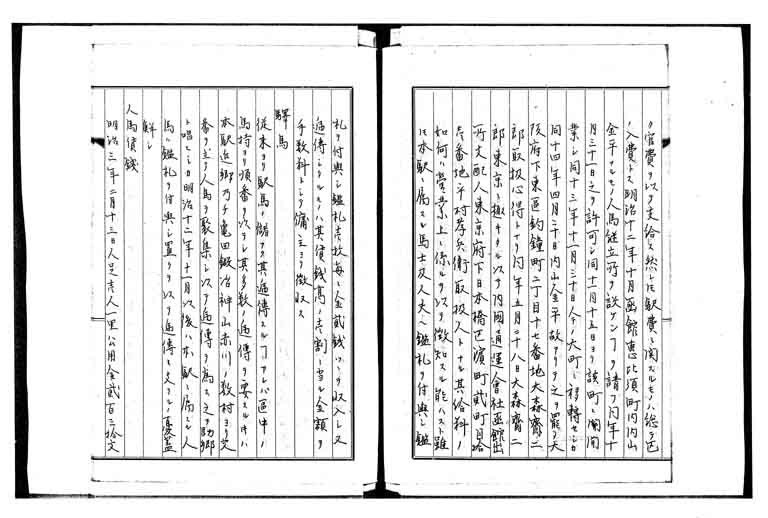 ヲ官費ヲ以テ支給ス然レ𪜈駅費ニ関スルモノハ総テ区
ノ入費トス明治十二年十月函館恵比須町内内山
金平ナルモノ人馬継立所ヲ設ケンヿヲ請フ同年十
月三十一日之ヲ許可シ同十一月十五日ヨリ該町ニ開
業シ同十三年十一月三十日今ノ大町ニ移轉セシカ
同十四年四月三十日内山金平故アリテ之ヲ罷ラ大
阪府下東區釣鐘町二丁目十七番地大森齋二
郎取扱心得トナリ同年五月二十八日大森齋二
郎東京ニ趣キタルヲ以テ内國通運會社函館出
所支配人東京府下日本橋区濱町貳町目拾
壱番地平村孝兵衛取扱人トナル其俗料ノ
如何ハ営業上ニ係ルヲ以テ徴知スル能ハスト雖
𪜈本駅ニ属スル馬士及人夫ヘ鑑札ヲ付與シ鑑
札ヲ付與シ鑑札壱枚毎ニ金貳銭ツヽヲ収入シ又
逓傳シタルモノハ其賃銭高ノ壱割ニ当ル金額ヲ
手数料トシテ傭主ヨリ徴収ス
驛馬
従来ヨリ駅馬ノ儲ケヲ其逓傳スルヿアレバ區中ノ
馬持ヨリ順番ヲ以テシ其多数ノ逓傳ヲ要スルキハ
本駅近郷乃チ亀田鍛冶神山赤川ノ数村ヨリ交
番ヲ立テ人馬ヲ聚集シ以テ逓傳ヲ為ス之ヲ助郷
ト唱ヒシカ明治十二年十一月以後ハ本駅ニ属スル人
馬ニ鑑札ヲ付與シ置クヲ以テ逓傳ニ支フルノ憂蓋
鮮シ
人馬賃銭
明治三年二月十三日人足壱人一里公用金貳百三拾文